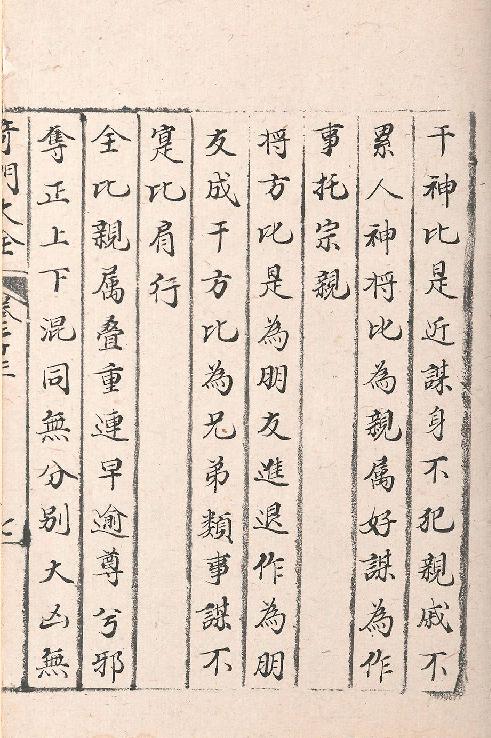 干神比是近謀身不犯親戚不
累人神将比為親属好謀為作
事托宗親
将方比是為朋友進退作為朋
友成干方比為兄弟類事謀不
寔比肩行
全比親属叠重連早逾尊兮邪
奪正上下混同無分别大凶無
奇門大全